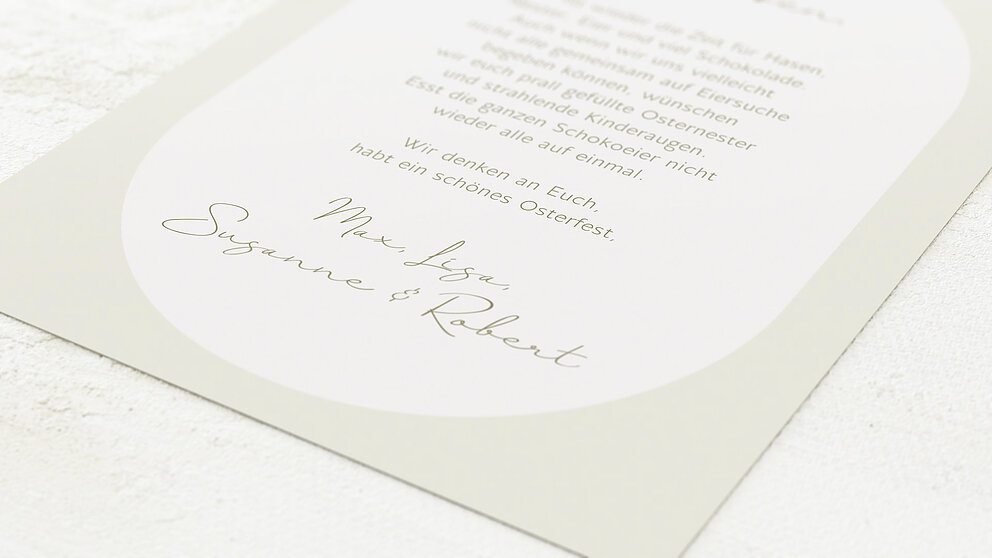 wieder die Zeit für Hasen,
Nester, Eier und viel Schokolade.
Auch wenn wir uns vielleicht
nicht alle gemeinsam auf Eiersuche
begeben können, wünschen
wir euch prall gefüllte Osternester
und strahlende Kinderaugen.
Esst die ganzen Schokoeier nicht
wieder alle auf einmal.
Wir denken an Euch,
habt ein schönes Osterfest,
Max, Lisa,
Susanne & Robert